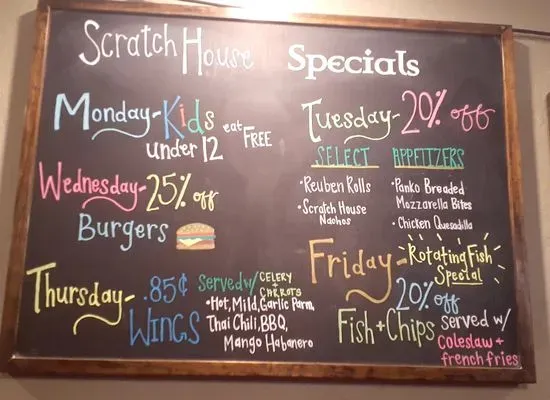 Scratch House Specials
Monday- Kids
under 12
eat
FREE
Tuesday- 20% off
SELECT APPETTZERS
• Reuben Rolls
• Scratch House
Nachos
• Panko Breaded
Mozzarella Bites
• Chicken Quesadilla
Wednesday- 25% off
Burgers
Thursday- .85¢
WINGS
Served w/ CELERY
+
CARROTS
• Hot, Mild, Garlic Parm,
Thai Chili, BBQ,
Mango Habanero
Friday- Rotating Fish
Special
20% off
Fish + Chips served w/
coleslaw +
french fries